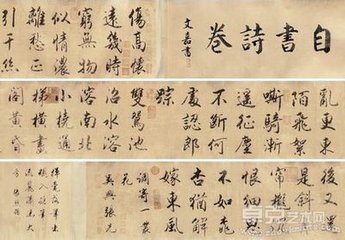 自書詩卷
文嘉書
傷高懷
遠幾時
窮無物
似情濃
離愁正
引千絲
亂更東
陌飛絮
嘶騎漸
遥征塵
不斷何
處認郎
踪
雙鴛池
沼水溶
溶南北
小橈通
梯橫畫
閣黃昏
後又還
是斜月
簾櫳沉
恨細思
不如桃
杏猶解
嫁東風
調寄一叢
花
吳興張先